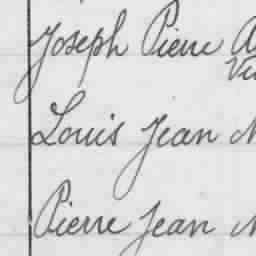 Joseph Pierre
Louis Jean
Pierre Jean